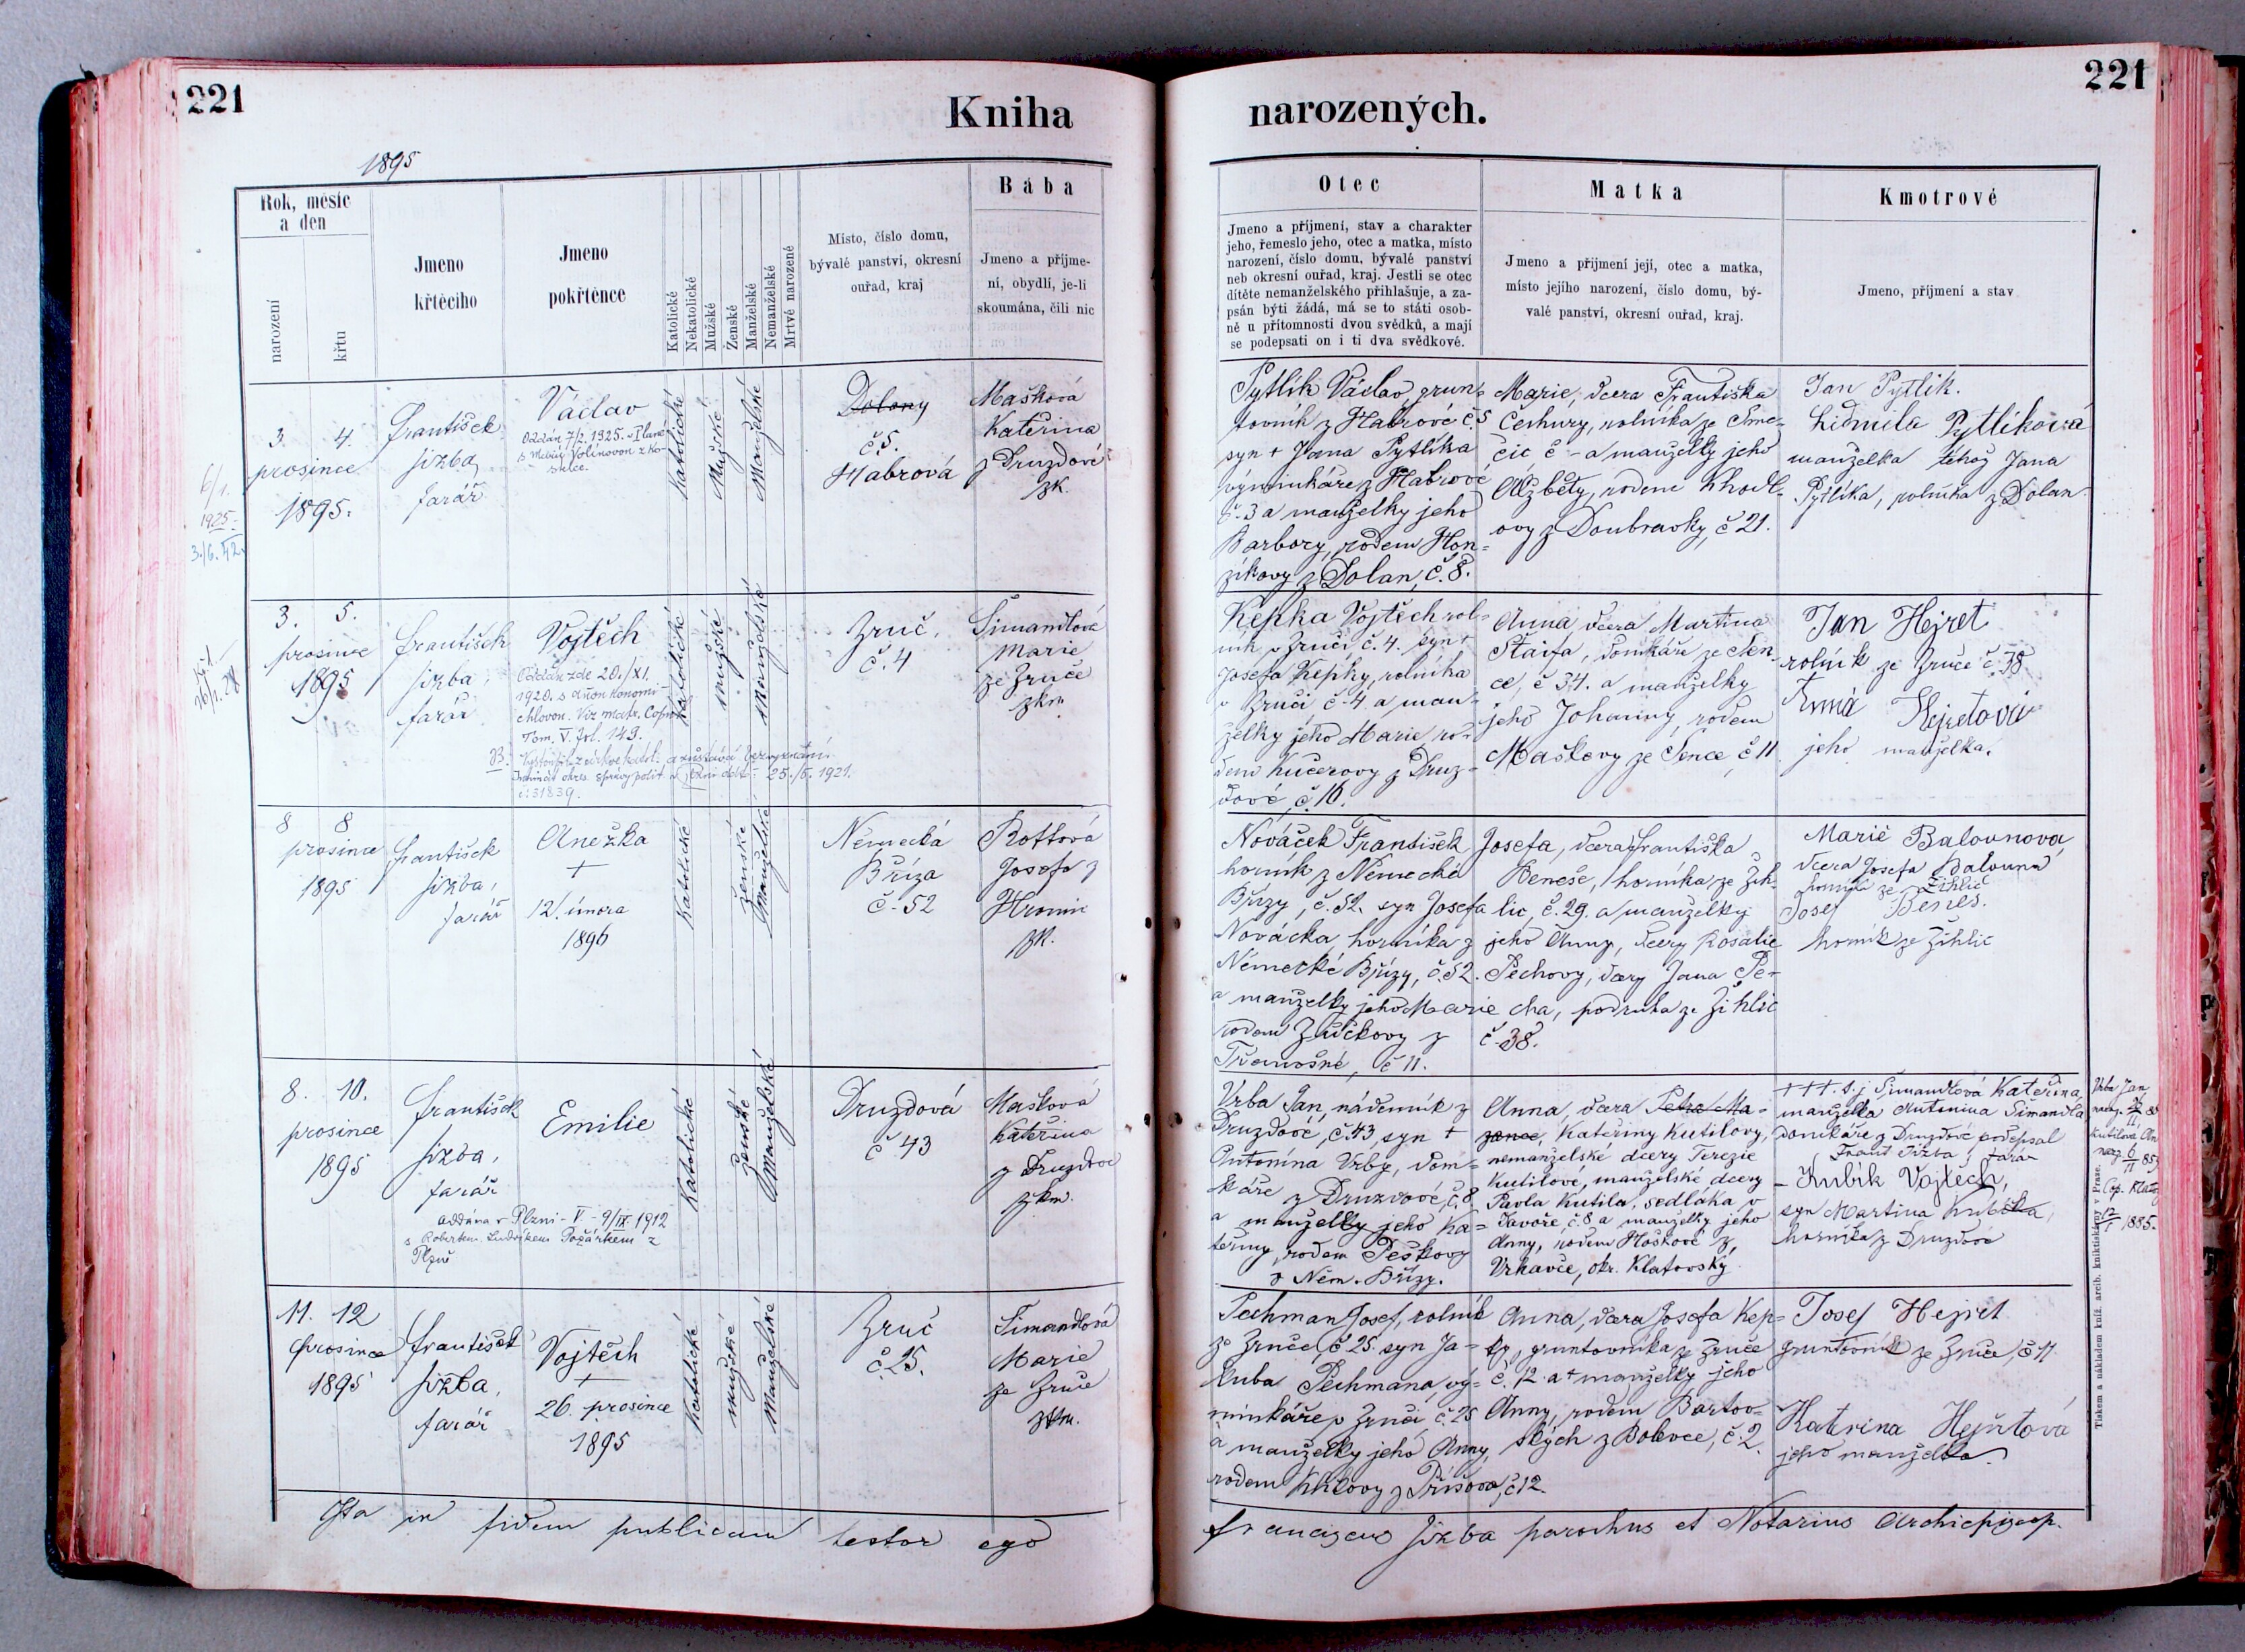 221
Kniha
1895
Rok, měsíc
a den
narození
křtu
Jmeno
křtěcího
Jmeno
pokřtěnce
Katolické
Nekatolické
Mužské
Ženské
Manželské
Nemanželské
Mrtvé narozené
Místo, číslo domu,
bývalé panství, okresní
ouřad, kraj
Bába
Jmeno a příjme-
ní, obydlí, je-li
skoumána, čili nic
6/1.
1925
3./6. 42.
3. 4.
prosince
1895.
František
Jizba,
farář
Václav
Oddán 7/2. 1925. v Plané
s Marií
Katolické
Mužské
Manželské
Dolany
č. 5.
Habrová
Mašková
Kateřina
z Druzdové
zk.
3. 5.
prosince
1895
František
Jizba,
farář
Vojtěch
Oddán zde 20./XI.
1920. s Annou
Viz matr. Cop.
Tom. V. fol. 143.
25./5. 1921.
č: 31839.
Katolické
mužské
Manželské
Zruč,
č. 4
Šimandlová
Marie
ze Zruče
zkm
8 8
prosince
1895
František
Jizba,
farář
Anežka
+
12/. února
1896
Katolické
ženské
Manželské
Německá
Bříza
č. 52
Rottová
Josefa z
Hromic
zk.
8. 10.
prosince
1895
František
Jizba,
farář
Emilie
Oddána v Plzni - V - 9/IX. 1912
s Robertem Ludvíkem Požárkem z
Plzně
Katolické
ženské
Manželské
Druzdová
č 43
Mašková
Kateřina
z Druzdové
zkm.
11. 12
prosince
1895
František
Jizba,
farář
Vojtěch
+
26. prosince
1895
Katolické
mužské
Manželské
Zruč
č. 25.
Šimandlová
Marie
ze Zruče
zkm.
Ita in fidem publicam testor ego
221
narozených.
Otec
Jmeno a příjmení, stav a charakter
jeho, řemeslo jeho, otec a matka, místo
narození, číslo domu, bývalé panství
neb okresní ouřad, kraj. Jestli se otec
dítěte nemanželského přihlašuje, a za-
psán býti žádá, má se to státi osob-
ně u přítomnosti dvou svědků, a mají
se podepsati on i ti dva svědkové.
Matka
Jmeno a příjmení její, otec a matka,
místo jejího narození, číslo domu, bý-
valé panství, okresní ouřad, kraj.
Kmotrové
Jmeno, příjmení a stav
Pytlík Václav, grun-
tovník z Habrové č. 5
syn + Jana Pytlíka
výminkáře z Habrové
č. 3 a manželky jeho
Barbory, rodem Hon=
zíkovy z Dolan, č. 8.
Marie, dcera Františka
Čechury, rolníka ze
čic č - a manželky jeho
Alžběty, rodem Khodl-
ovy z Doubravky, č 21.
Jan Pytlík.
Lidmila Pytlíková
manželka téhož Jana
Pytlíka, rolníka z Dolan
Kepka Vojtěch rol-
ník v Zruči č. 4. syn +
Josefa Kepky, rolníka
v Zruči č. 4 a man-
želky jeho Marie ro-
dem Kučerovy z Druz-
dové, č. 16.
Anna, dcera Martina
Štaifa, domkáře ze Sen-
ce, č 34. a manželky
jeho Johanny, rodem
Maškovy ze Sence, č 11
Jan Hejret
rolník ze Zruče č. 38
Anna Hejretová
jeho manželka.
Nováček František
horník z Německé
Břízy, č. 52. syn Josefa
Nováčka, horníka z
Německé Břízy, č. 52.
a manželky jeho Marie
rodem Žáčkovy z
Třemošné, č 11.
Josefa, dcera Františka
Beneše, horníka ze Žih-
lic, č. 29. a manželky
jeho Anny, dcery Rosalie
Pechovy, dcery Jana Pe-
cha, podruha ze Žihlic
č. 38.
Marie Balounová,
dcera Josefa Balouna
horníka ze Žihlic
Josef Beneš.
horník ze Žihlic
Vrba Jan, nádenník z
Druzdové, č. 43, syn +
Antonína Vrby, dom-
káře z Druzdové, č. 8
a manželky jeho Ka-
teřiny, rodem Peškovy
z Něm. Břízy.
Anna, dcera Petra Ma-
zance, Kateřiny Kutilovy,
nemanželské dcery Terezie
Kutilové, manželské dcery
Pavla Kutila, sedláka, v
Javoře, č. 8 a manželky jeho
Anny, rodem Hoškové z
Vrhavče, okr. Klatovský
+++. t. j. Šimandlová Kateřina,
manželka Antonína Šimandla,
domkáře z Druzdové podepsal
Frant Jizba, farář
Kubík Vojtěch,
syn Martina Kubíka,
horníka z Druzdové
Vrba Jan,
Kutilova An
Cop. Klato
12/1 1885.
Pechman Josef, rolník
ze Zruče, č 25. syn Ja-
kuba Pechmana, vý-
minkáře v Zruči, č. 25
a manželky jeho Anny,
rodem Khilovy z Příšova, č 12.
Anna, dcera Josefa Kep-
ky, gruntovníka ze Zruče
č. 12. a + manželky jeho
Anny, rodem Bartov-
ských z Bolevce, č. 2.
Josef Hejret
gruntovník ze Zruče, č 11
Katerina Hejrtová
jeho manželka.
Tiskem a nákladem kníž. arcib. knihtiskárny v Praze.
Franciscus Jizba parochus et Notarius Archiepiscop.